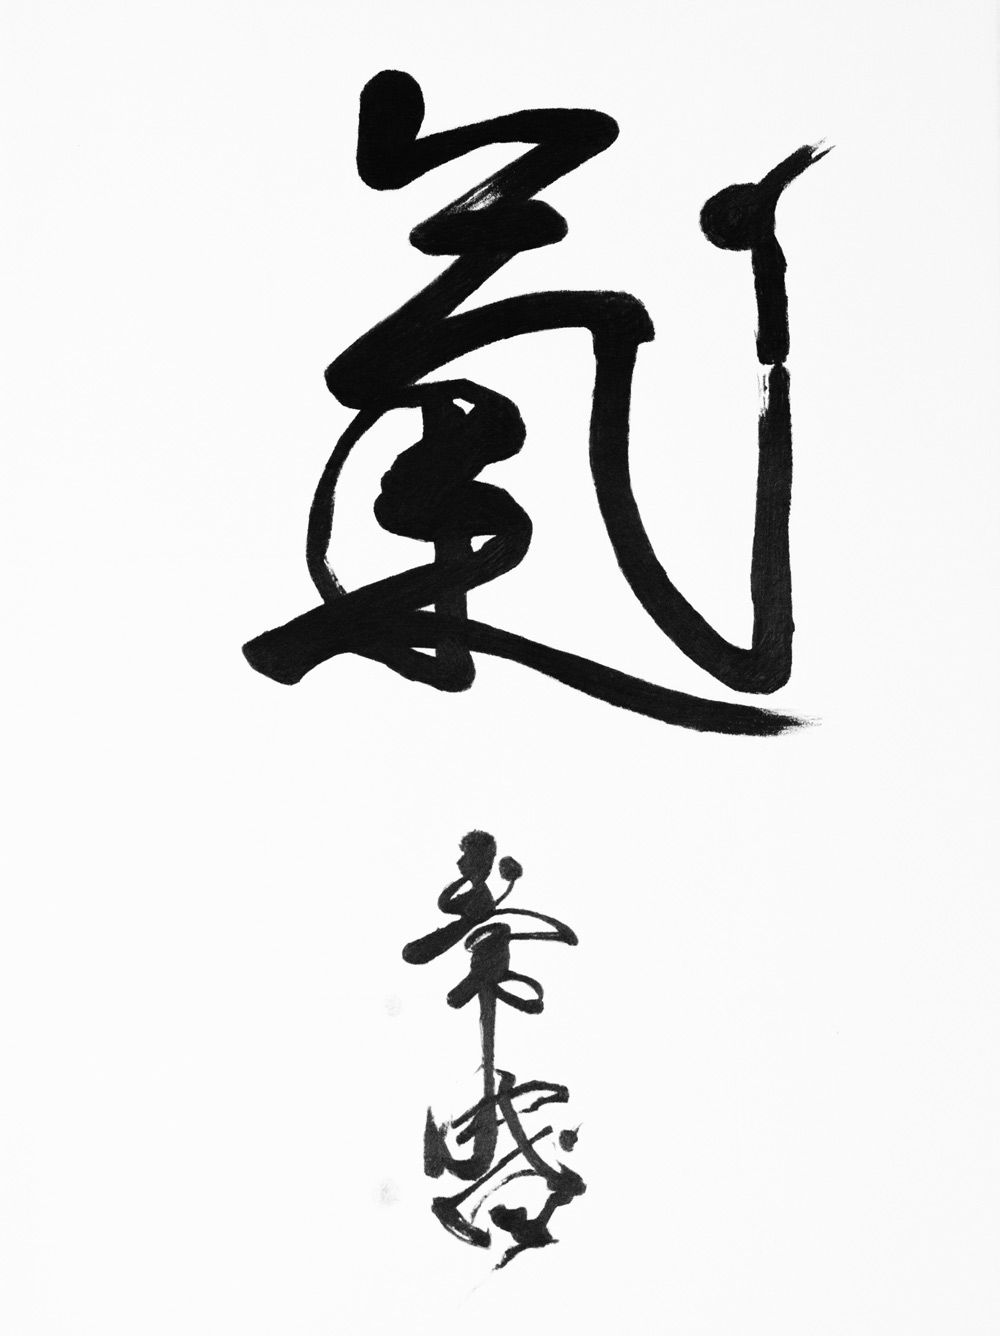 氣
常盛